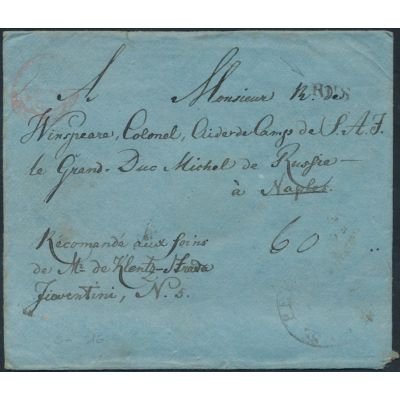 A Monsieur R. de
Winspeare, Colonel, Aide de Camps de S. A. I.
le Grand-Duc Michel de Russie—
à Naples.
60
Recomandé aux soins
de Mr. de Klentz-Strada
Fioventini, N. 5.